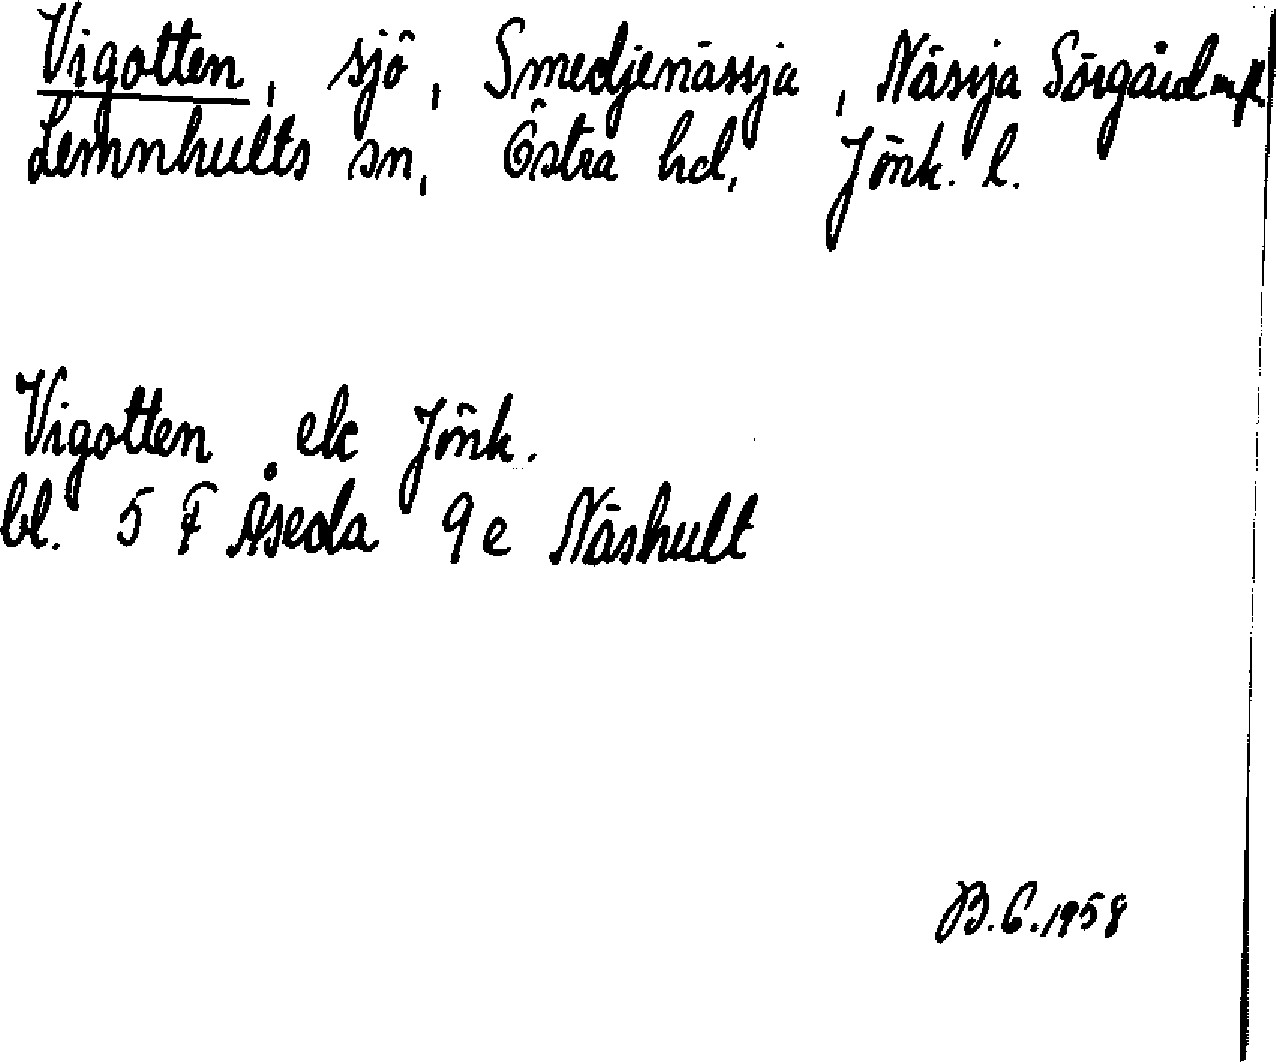 Vigotten, sjö, Smedjenässja, Nässja Sörgård m fl
Lemnhults sn, Östra hd, Jönk. l.
Vigotten ek Jönk.
bl. 5 F Åseda 9 e Näshult
B.C. 1958